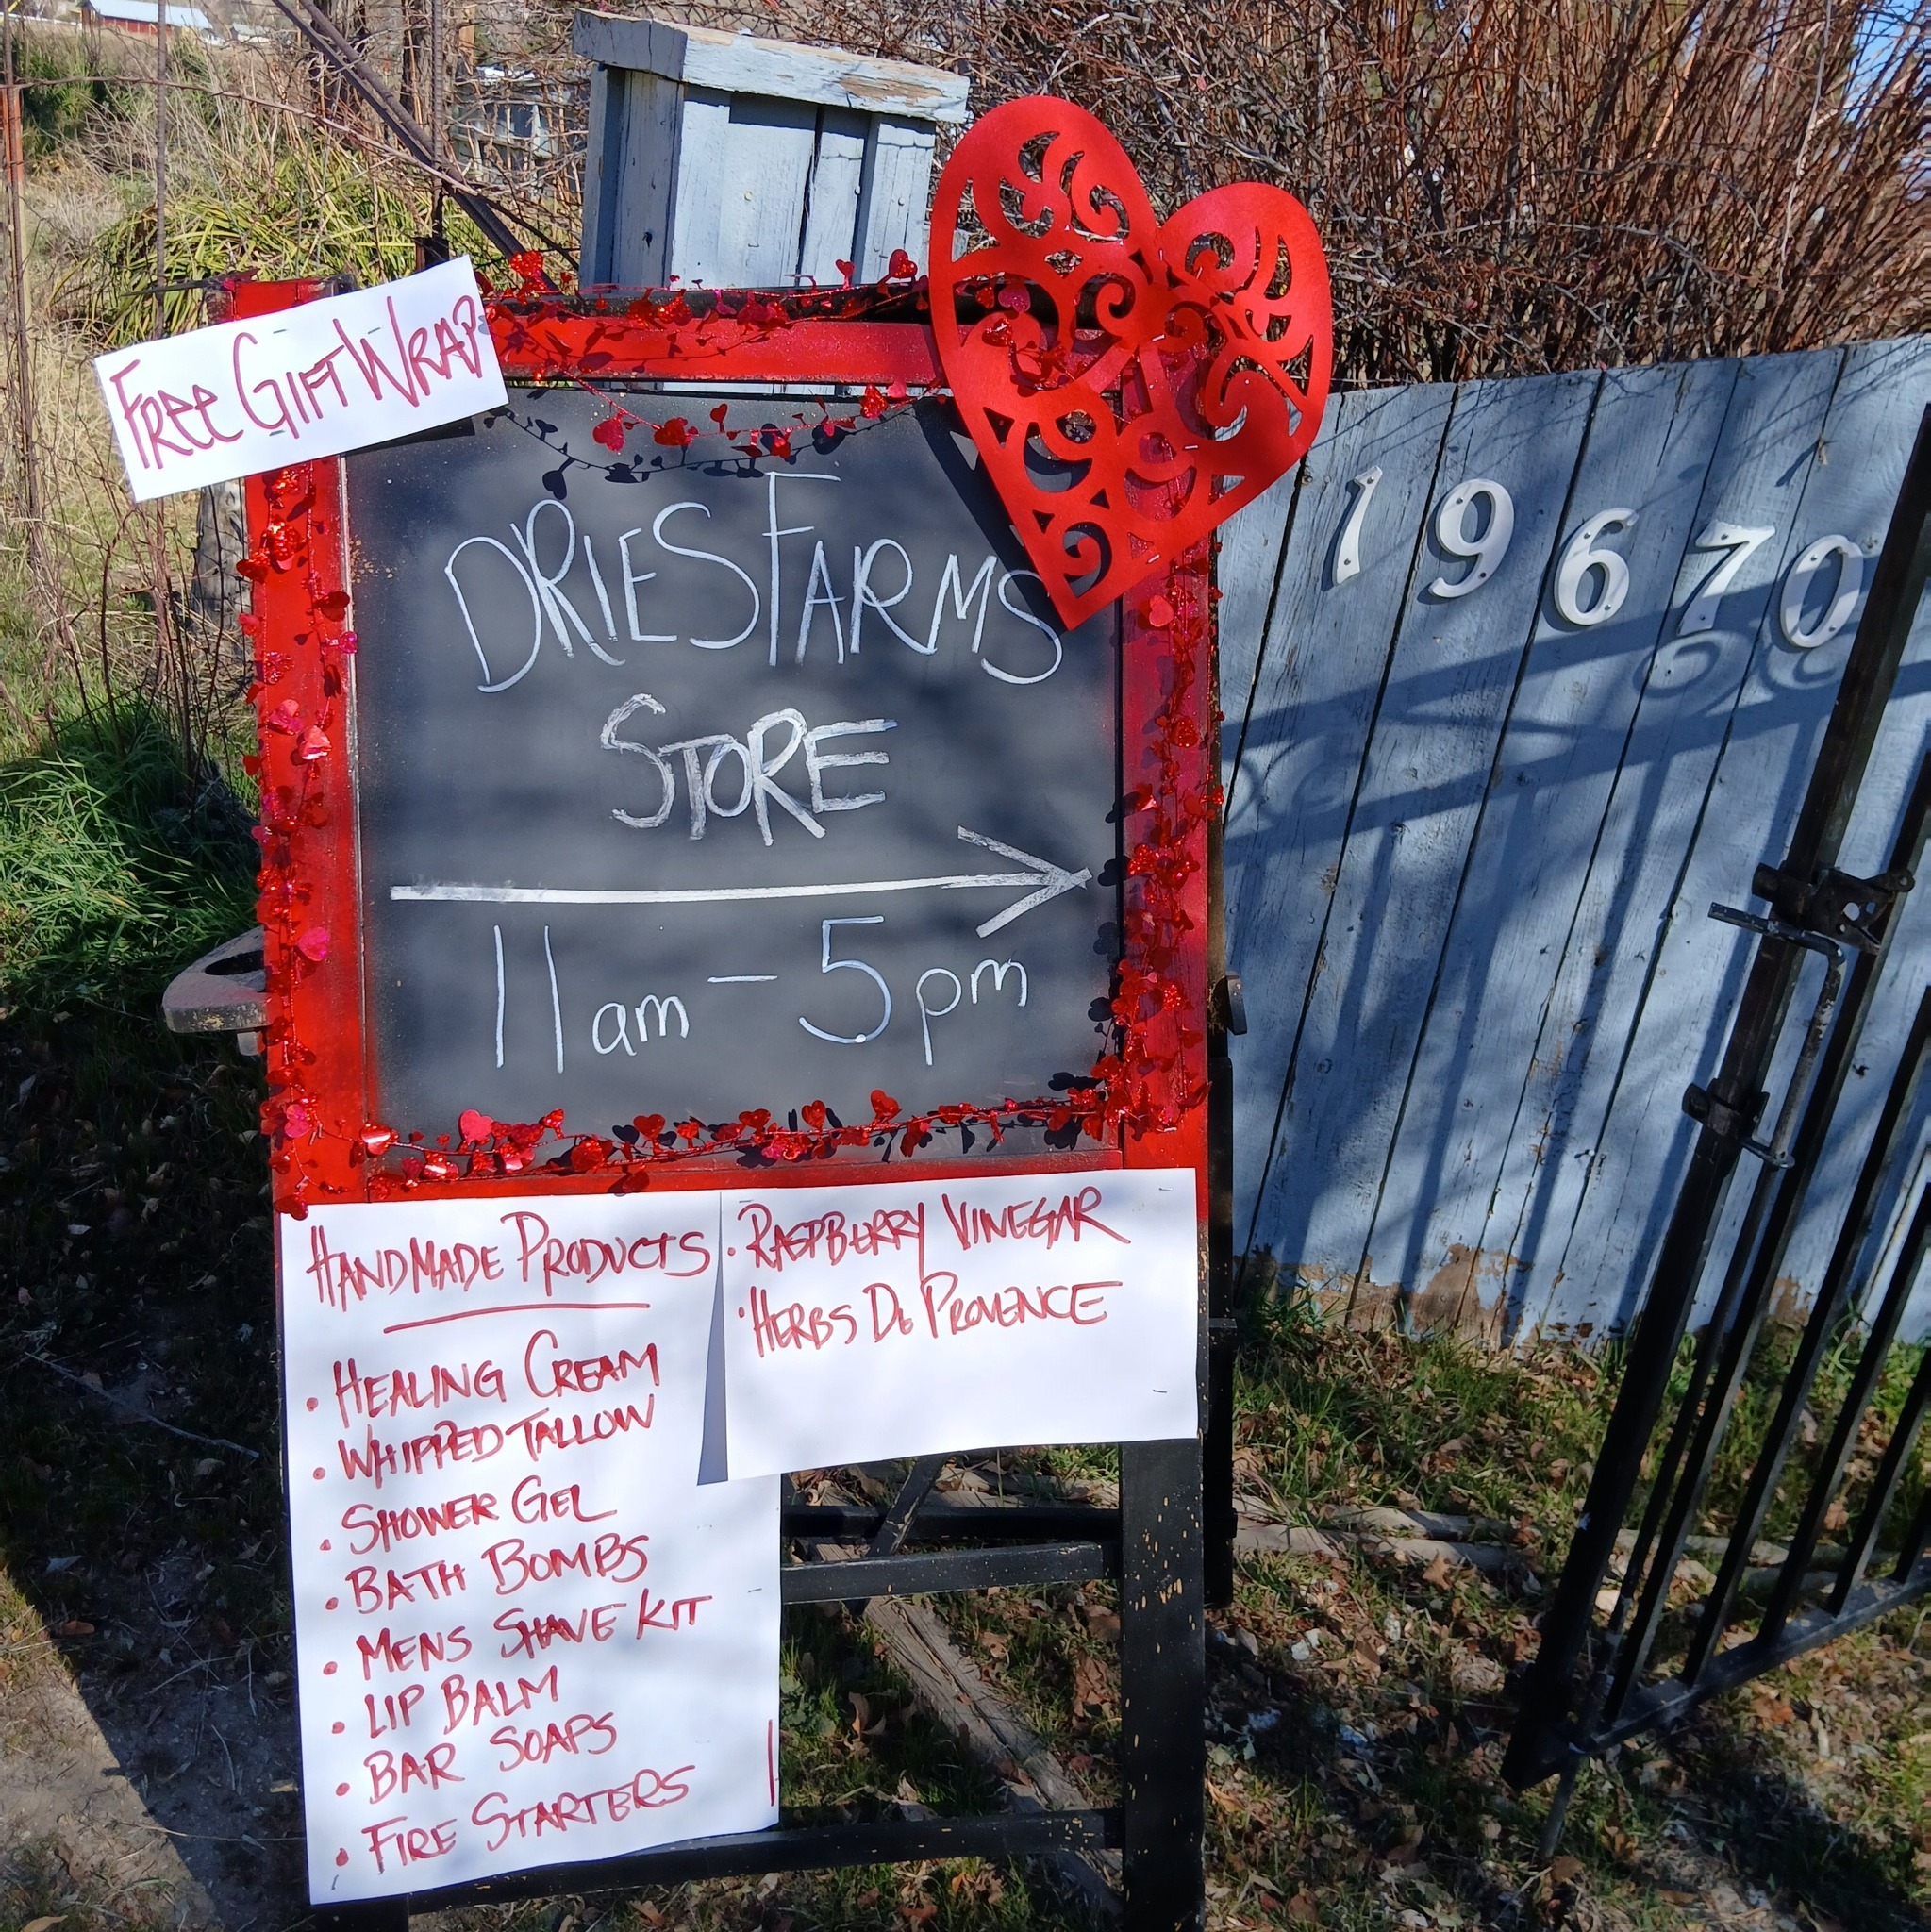 Free Gift Wrap
DRIES FARMS
STORE
11am - 5pm
19670
HANDMADE PRODUCTS
• HEALING CREAM
• WHIPPED TALLOW
• SHOWER GEL
• BATH BOMBS
• MENS SHAVE KIT
• LIP BALM
• BAR SOAPS
• FIRE STARTERS
• RASPBERRY VINEGAR
• HERBS De PROVENCE